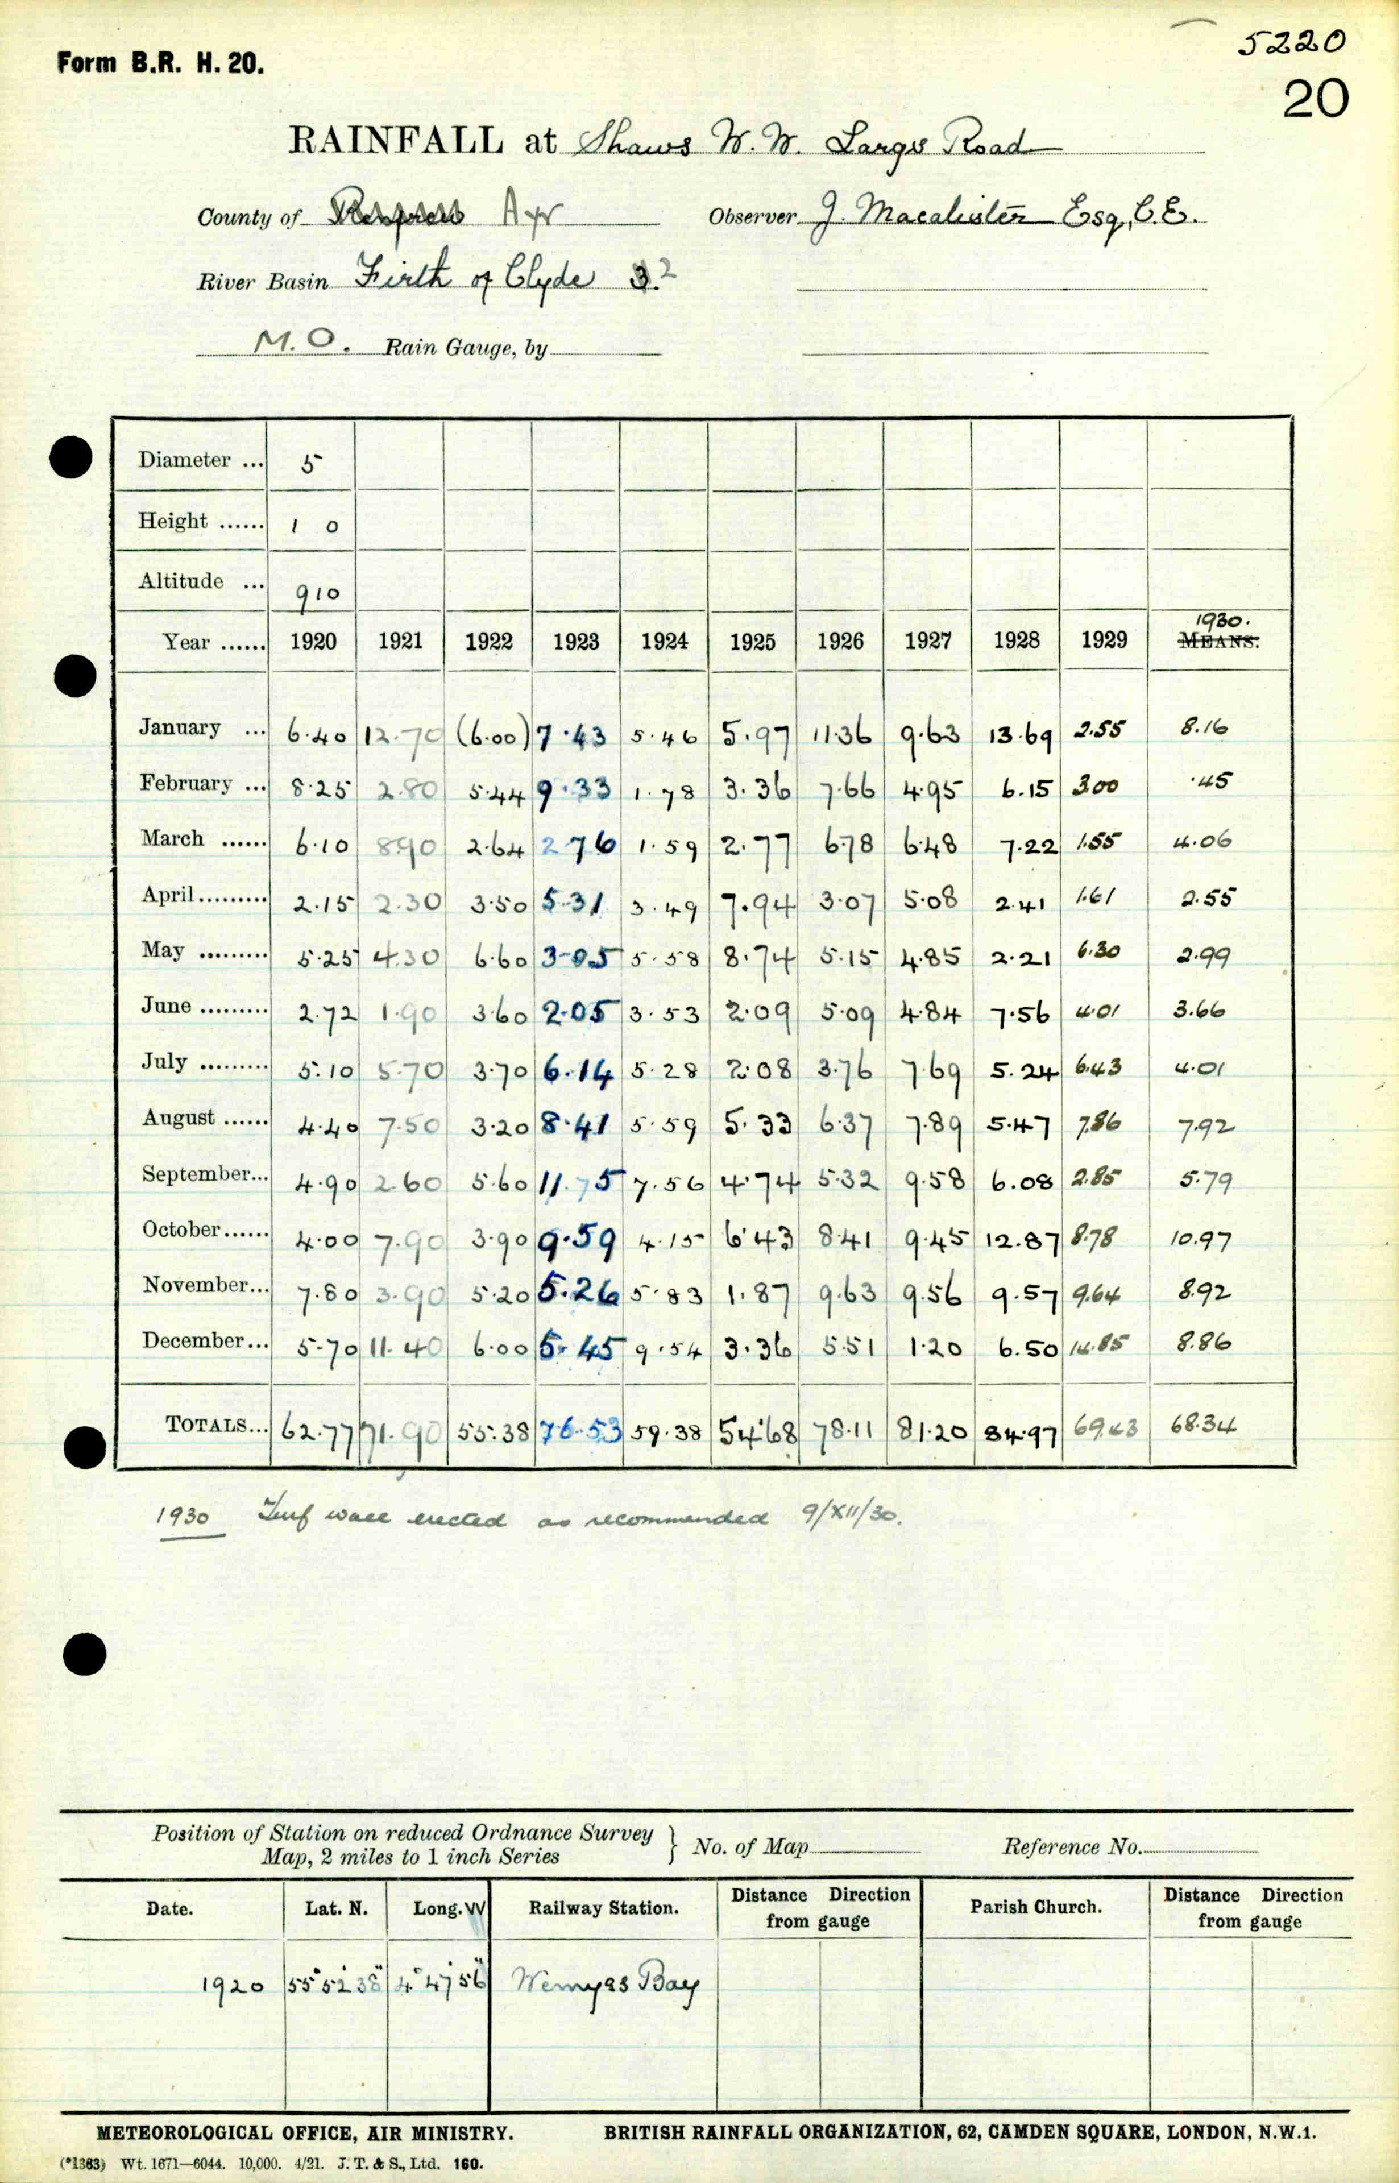 5220
Form B.R. H. 20.
20
RAINFALL at Shaws W.W. Largs Road
County of Renfrew Ayr Observer J. Macalister Esq, C.E.
River Basin Firth of Clyde 3.2
M.O. Rain Gauge, by
Diameter ... 5
Height ...... 1 0
Altitude ... 910
1930.
Year ...... 1920 1921 1922 1923 1924 1925 1926 1927 1928 1929 MEANS.
January ... 6.40 12.70 (6.00) 7.43 5.46 5.97 11.36 9.63 13.69 2.55 8.16
February ... 8.25 2.80 5.44 9.33 1.78 3.36 7.66 4.95 6.15 3.00 .45
March ...... 6.10 8.90 2.64 2.76 1.59 2.77 6.78 6.48 7.22 1.55 4.06
April ......... 2.15 2.30 3.50 5.31 3.49 7.94 3.07 5.08 2.41 1.61 2.55
May ......... 5.25 4.30 6.60 3.05 5.58 8.74 5.15 4.85 2.21 6.30 2.99
June ......... 2.72 1.90 3.60 2.05 3.53 2.09 5.09 4.84 7.56 4.01 3.66
July ......... 5.10 5.70 3.70 6.14 5.28 2.08 3.76 7.69 5.24 6.43 4.01
August ...... 4.40 7.50 3.20 8.41 5.59 5.33 6.37 7.89 5.47 7.86 7.92
September... 4.90 2.60 5.60 11.75 7.56 4.74 5.32 9.58 6.08 2.85 5.79
October ...... 4.00 7.90 3.90 9.59 4.15 6.43 8.41 9.45 12.87 8.78 10.97
November... 7.80 3.90 5.20 5.26 5.83 1.87 9.63 9.56 9.57 9.64 8.92
December... 5.70 11.40 6.00 5.45 9.54 3.36 5.51 1.20 6.50 14.85 8.86
TOTALS... 62.77 71.90 55.38 76.53 59.38 54.68 78.11 81.20 84.97 69.43 68.34
1930 Turf wall erected as recommended 9/XII/30.
Position of Station on reduced Ordnance Survey
Map, 2 miles to 1 inch Series } No. of Map Reference No.
Date. Lat. N. Long. W Railway Station. Distance Direction from gauge Parish Church. Distance Direction from gauge
1920 55° 52' 38" 4° 47' 56" Wemyss Bay
METEOROLOGICAL OFFICE, AIR MINISTRY. BRITISH RAINFALL ORGANIZATION, 62, CAMDEN SQUARE, LONDON, N.W.1.
(*1363) Wt. 1671—6044. 10,000. 4/21. J. T. & S., Ltd. 160.